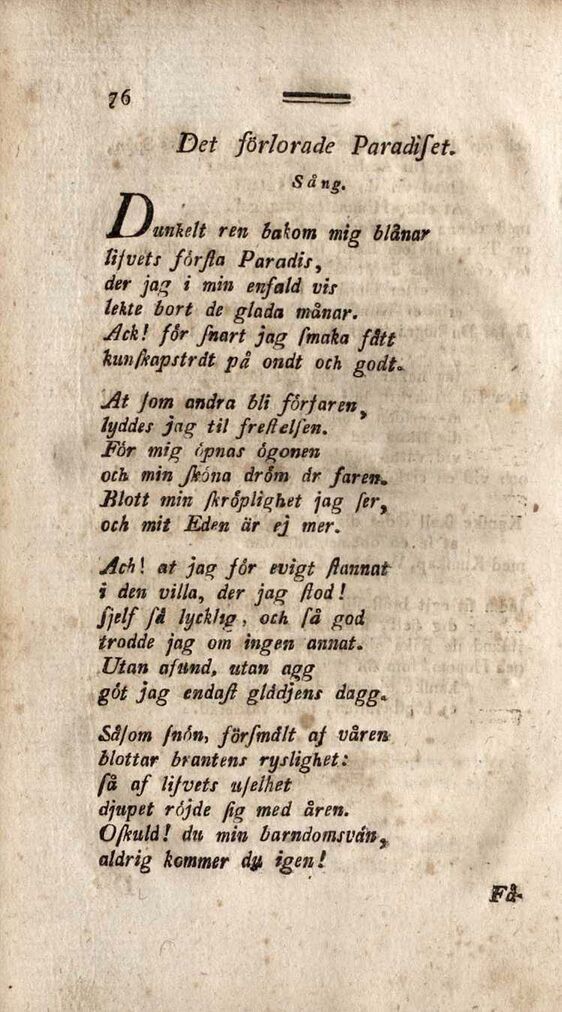 76
Det förlorade Paradiset.
Sång.
Dunkelt ren bakom mig blånar
lifvets första Paradis,
der jag i min enfald vis
lekte bort de glada månar.
Ack! för snart jag smaka fått
kunskapsträt på ondt och godt.
At som andra bli förfaren,
lyddes jag til frestelsen.
För mig öpnas ögonen
och min sköna dröm är faren.
Blott min skröplighet jag ser,
och mit Eden är ej mer.
Ach! at jag för evigt stannat
i den villa, der jag stod!
sjelf så lycklig, och så god
trodde jag om ingen annat.
Utan afund, utan agg
göt jag endast glädjens dagg.
Såsom snön, försmält af våren
blottar brantens ryslighet:
så af lifvets uselhet
djupet röjde sig med åren.
Oskuld! du min barndomsvän,
aldrig kommer du igen!
Få-